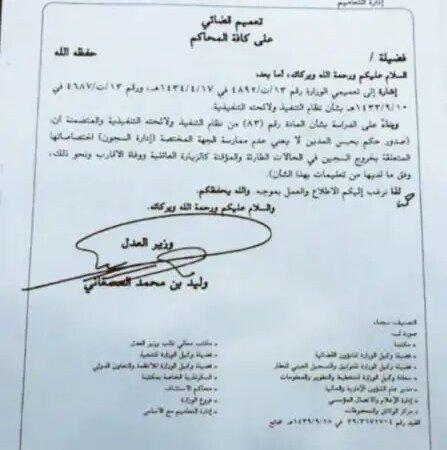 إدارة التعاميم
تعميم قضائي
على كافة المحاكم
فضيلة / حفظه الله
السلام عليكم ورحمة الله وبركاته، أما بعد:
إشارة إلى تعميمي الوزارة رقم ١٣/ت/٤٨٩٢ في ١٤٣٤/٤/١٧هـ، ورقم ١٣/ت/٤٦٨٧ في
١٤٣٣/٩/١٠هـ بشأن نظام التنفيذ ولائحته التنفيذية.
وبناءً على الدراسة بشأن المادة رقم (٨٣) من نظام التنفيذ ولائحته التنفيذية والمتضمنة أن
(صدور حكم بحبس المدين لا يعني عدم ممارسة الجهة المختصة (إدارة السجون) اختصاصاتها
المتعلقة بخروج السجين في الحالات الطارئة والمؤقتة كالزيارة العائلية ووفاة الأقارب ونحو ذلك،
وفق ما لديها من تعليمات بهذا الشأن).
لذا نرغب إليكم الاطلاع والعمل بموجبه. والله يحفظكم.
والسلام عليكم ورحمة الله وبركاته.
وزير العدل
وليد بن محمد الصمعاني
صورة لـ:
• مكتبنا
• فضيلة وكيل الوزارة للشؤون القضائية
• فضيلة وكيل الوزارة للتوثيق والتسجيل العيني للعقار
• سعادة وكيل الوزارة للتخطيط والتطوير والمعلومات
• مدير عام الشؤون الإدارية والمالية
• إدارة الإعلام والاتصال المؤسسي
• مركز الوثائق والمحفوظات
• مكتب معالي نائب وزير العدل
• فضيلة وكيل الوزارة للتنفيذ
• فضيلة وكيل الوزارة للأنظمة والتعاون الدولي
• السكرتارية الخاصة بمكتبنا
• محاكم الاستئناف
• فروع الوزارة
• إدارة التعاميم مع الأساس
القيد رقم ٣٩/٣٦٧١٧٠٤ في ١٤٣٩/٩/١٨هـ